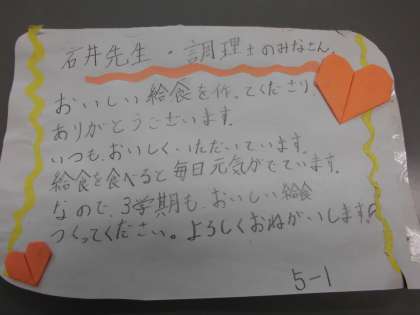 石井先生・調理士のみなさん
おいしい給食を作ってくださり
ありがとうございます。
いつも、おいしくいただいています。
給食を食べると毎日元気がでています。
なので、3学期も、おいしい給食
つくってください。よろしくおねがいします!
5-1